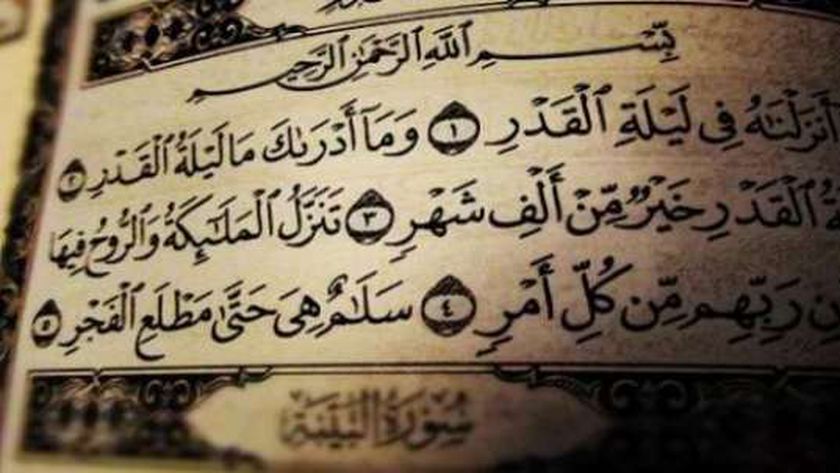 بِسْمِ ٱللَّهِ ٱلرَّحْمَٰنِ ٱلرَّحِيمِ
أَنزَلْنَٰهُ فِى لَيْلَةِ ٱلْقَدْرِ ١ وَمَآ أَدْرَىٰكَ مَا لَيْلَةُ ٱلْقَدْرِ ٢
ٱلْقَدْرِ خَيْرٌ مِّنْ أَلْفِ شَهْرٍ ٣ تَنَزَّلُ ٱلْمَلَٰٓئِكَةُ وَٱلرُّوحُ فِيهَا
رَبِّهِم مِّن كُلِّ أَمْرٍ ٤ سَلَٰمٌ هِىَ حَتَّىٰ مَطْلَعِ ٱلْفَجْرِ ٥
سُورَةُ البَيِّنَةِ